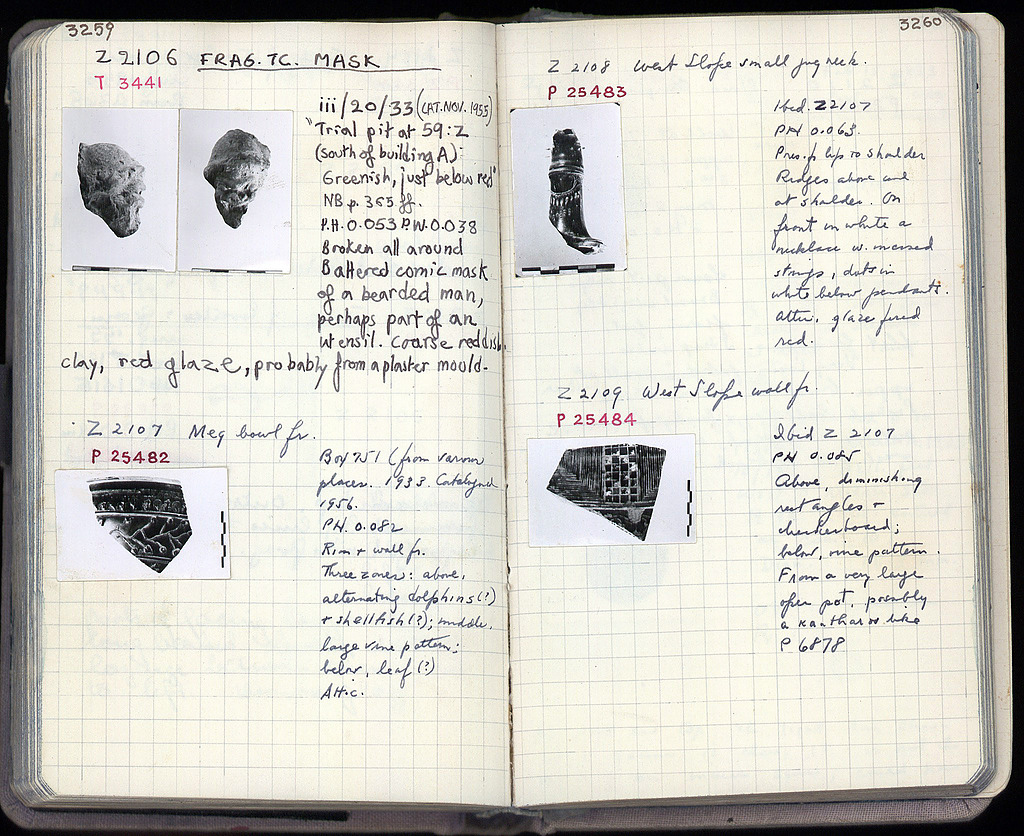 3259
Z 2106 FRAG. TC. MASK
T 3441
iii/20/33 (CAT. NOV. 1955)
"Trial pit at 59:Z
(south of building A)
Greenish, just below red"
NB p. 365 ff.
P.H. 0.053 P.W. 0.038
Broken all around
Battered comic mask
of a bearded man,
perhaps part of an
utensil. Coarse reddish
clay, red glaze, probably from a plaster mould.
Z 2107 Meg bowl fr.
P 25482
Box 751 (from various
places. 1933. Catalogued
1956.
PH. 0.082
Rim + wall fr.
Three zones: above,
alternating dolphins (?)
+ shellfish (?); middle,
large vine pattern;
below, leaf (?)
Attic.
3260
Z 2108 West Slope small jug neck.
P 25483
Ibid. Z 2107
PH 0.063.
Pres. fr lip to shoulder
Ridges above and
at shoulder. On
front in white a
necklace w. incised
strings, dots in
white below pendants.
Attic. glaze fired
red.
Z 2109 West Slope wall fr.
P 25484
Ibid Z 2107
PH 0.085
Above, diminishing
rectangles +
checkerboard;
below, vine pattern.
From a very large
open pot, possibly
a kantharos like
P 6878